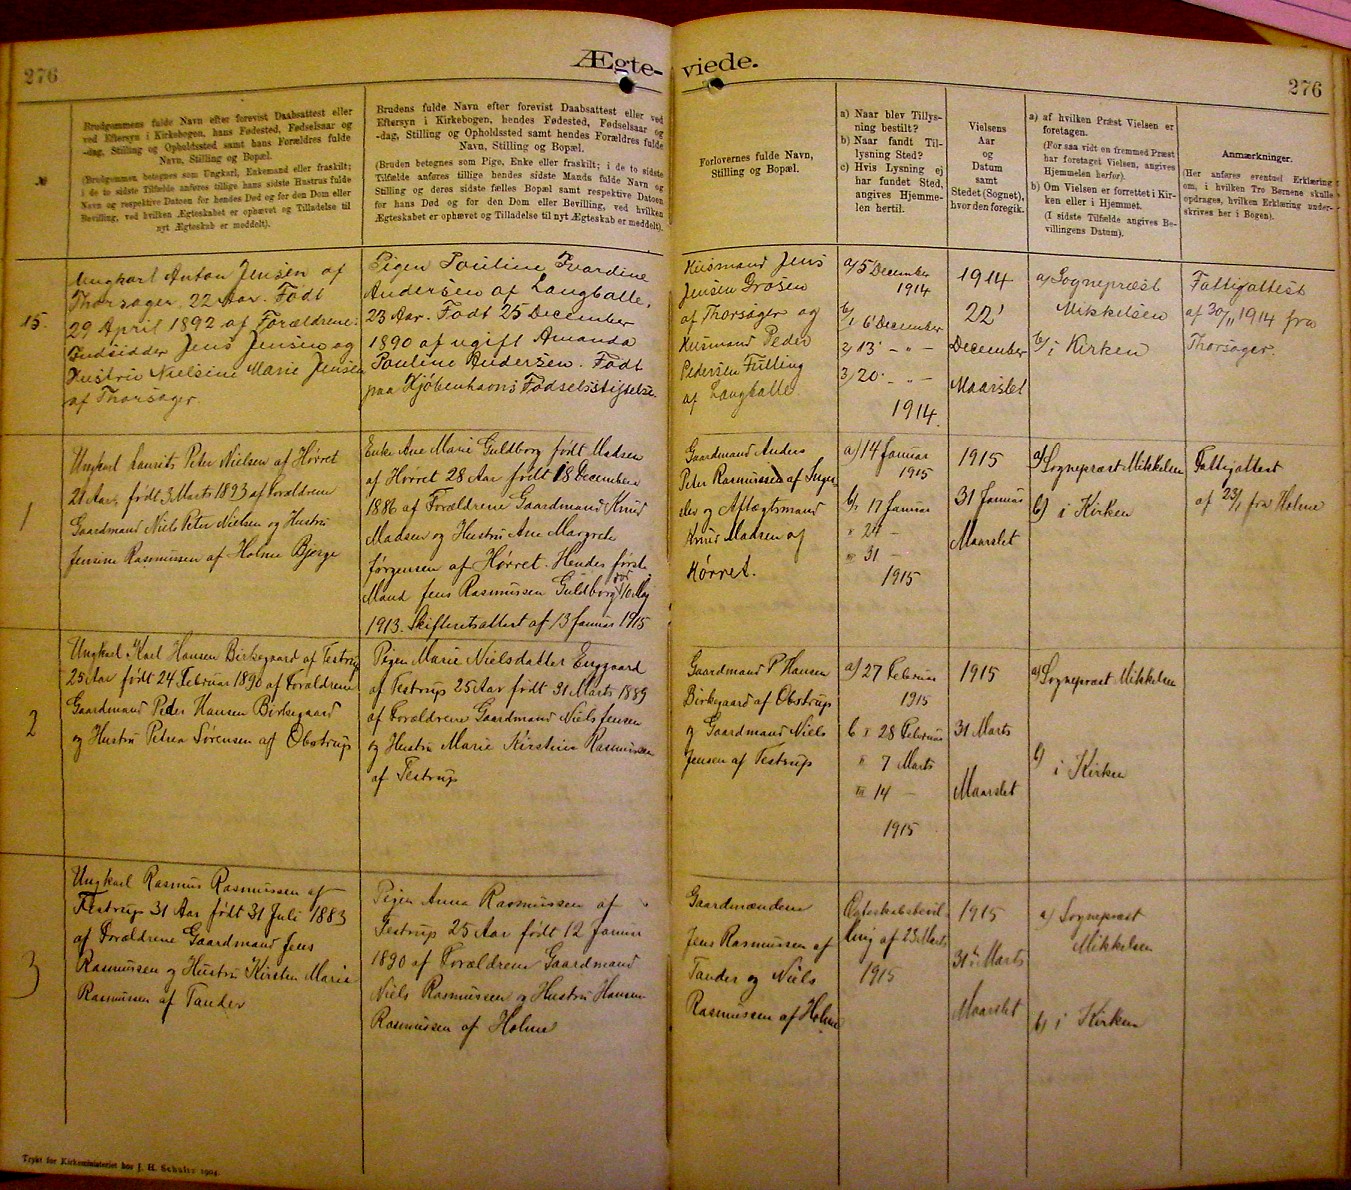 276
Ægte-
viede.
276
№
Brudgommens fulde Navn efter forevist Daabsattest eller
ved Eftersyn i Kirkebogen, hans Fødested, Fødselsaar og
-dag, Stilling og Opholdssted samt hans Forældres fulde
Navn, Stilling og Bopæl.
(Brudgommen betegnes som Ungkarl, Enkemand eller fraskilt;
i de to sidste Tilfælde anføres tillige hans sidste Hustrus fulde
Navn og respektive Datoen for hendes Død og for den Dom eller
Bevilling, ved hvilken Ægteskabet er ophævet og Tilladelse til
nyt Ægteskab er meddelt).
Brudens fulde Navn efter forevist Daabsattest eller ved
Eftersyn i Kirkebogen, hendes Fødested, Fødselsaar og
-dag, Stilling og Opholdssted samt hendes Forældres fulde
Navn, Stilling og Bopæl.
(Bruden betegnes som Pige, Enke eller fraskilt; i de to sidste
Tilfælde anføres tillige hendes sidste Mands fulde Navn og
Stilling og deres sidste fælles Bopæl samt respektive Datoen
for hans Død og for den Dom eller Bevilling, ved hvilken
Ægteskabet er ophævet og Tilladelse til nyt Ægteskab er meddelt).
Forlovernes fulde Navn,
Stilling og Bopæl.
a) Naar blev Tillys-
ning bestilt?
b) Naar fandt Til-
lysning Sted?
c) Hvis Lysning ej
har fundet Sted,
angives Hjemme-
len hertil.
Vielsens
Aar
og
Datum
samt
Stedet (Sognet),
hvor den foregik.
a) af hvilken Præst Vielsen er
foretagen.
(For saa vidt en fremmed Præst
har foretaget Vielsen, angives
Hjemmelen herfor).
b) Om Vielsen er forrettet i Kir-
ken eller i Hjemmet.
(I sidste Tilfælde angives Be-
villingens Datum).
Anmærkninger.
(Her anføres eventuel Erklæring
om, i hvilken Tro Børnene skulle
opdrages, hvilken Erklæring under-
skrives her i Bogen).
15.
Ungkarl Anton Jensen af
Thorsager, 22 Aar. Født
29 April 1892 af Forældrene:
Indsidder Jens Jensen og
Hustru Nielsine Marie Jensen
af Thorsager.
Pigen Pauline Ivardine
Andersen af Langballe,
23 Aar. Født 25 December
1890 af ugift Amanda
Pauline Andersen. Født
paa Kjøbenhavns Fødselsstiftelse.
Husmand Jens
Jensen Grosen
af Thorsager og
Husmand Peder
Pedersen Fulling
af Langballe
a/ 5 December
1914
b/1 6 December
2/ 13 - " -
3/ 20 - " -
1914.
1914
22'
December
Maarslet
a/ Sognepræst
Mikkelsen
b/ i Kirken
Fattigattest
af 30/11 1914 fra
Thorsager.
1
Ungkarl Laurits Peter Nielsen af Hørret
21 Aar, født 3 Marts 1893 af Forældrene
Gaardmand Niels Peter Nielsen og Hustru
Jensine Rasmussen af Holme Bjerge
Enke Ane Marie Guldborg født Madsen
af Hørret 28 Aar født 18 December
1886 af Forældrene Gaardmand Knud
Madsen og Hustru Ane Margrete
Jørgensen af Hørret. Hendes første
Mand Jens Rasmussen Guldborg død 10 Maj
1913. Skifteretsattest af 13 Januar 1915
Gaardmand Anders
Peter Rasmussen af Inger
slev og Aftægtsmand
Knud Madsen af
Hørret.
a) 14 Januar
1915
b/1 17 Januar
" 24 -
"' 31 -
1915
1915
31 Januar
Maarslet
a) Sognepræst Mikkelsen
b) i Kirken
Fattigattest
af 23/1 fra Holme
2
Ungkarl Karl Hansen Birkegaard af Testrup
25 Aar født 24 Februar 1890 af Forældrene
Gaardmand Peder Hansen Birkegaard
og Hustru Petrea Sørensen af Obstrup
Pigen Marie Nielsdatter Enggaard
af Testrup 25 Aar født 31 Marts 1889
af Forældrene Gaardmand Niels Jensen
og Hustru Marie Kirstine Rasmussen
af Testrup
Gaardmand P Hansen
Birkegaard af Obstrup
og Gaardmand Niels
Jensen af Testrup
a) 27 Februar
1915
b I 28 Februar
II 7 Marts
III 14 -
1915
1915
31 Marts
Maarslet
a) Sognepræst Mikkelsen
b) i Kirken
3
Ungkarl Rasmus Rasmussen af
Testrup 31 Aar født 31 Juli 1883
af Forældrene Gaardmand Jens
Rasmussen og Hustru Kirsten Marie
Rasmussen af Tander
Pigen Anna Rasmussen af
Testrup 25 Aar født 12 Januar
1890 af Forældrene Gaardmand
Niels Rasmussen og Hustru Hansen
Rasmussen af Holme
Gaardmændene
Jens Rasmussen af
Tander og Niels
Rasmussen af Holme
Ægteskabsbevil-
ling af 23 Marts
1915
1915
31 Marts
Maarslet
a) Sognepræst
Mikkelsen
b) i Kirken
Trykt for Kirkeministeriet hos J. H. Schultz 1904.